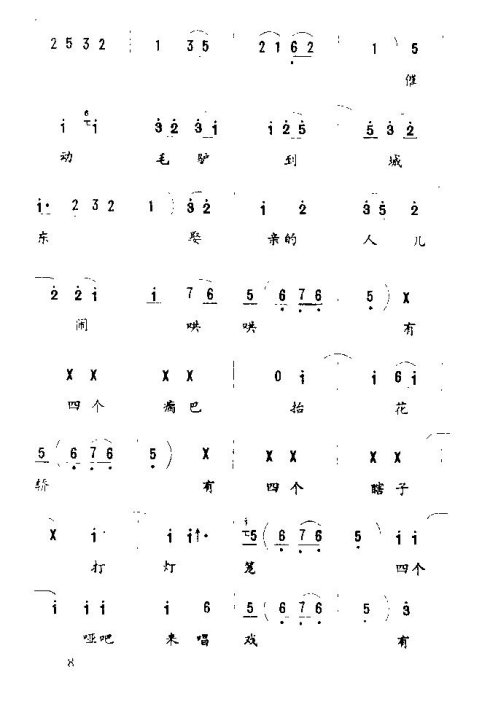 2 5 3 2 1 (3 5 2 1 6 2 1) 5
催
i i 3 2 3 i i 2 5 5 3 2
动 毛 驴 到 城
i· 2 3 2 1) 3 2 i 2 3 5 2
东 娶 亲的 人 儿
2 2 i i 7 6 5 (6 7 6 5) X
闹 哄 哄 有
X X X X 0 i i 6 i
四 个 瘸 巴 抬 花
5 (6 7 6 5) X X X X X
轿 有 四 个 瞎 子
X i· i i· 5 (6 7 6 5) i i
打 灯 笼 四个
i i i i 6 5 (6 7 6 5) 3
哑吧 来 唱 戏 有
8